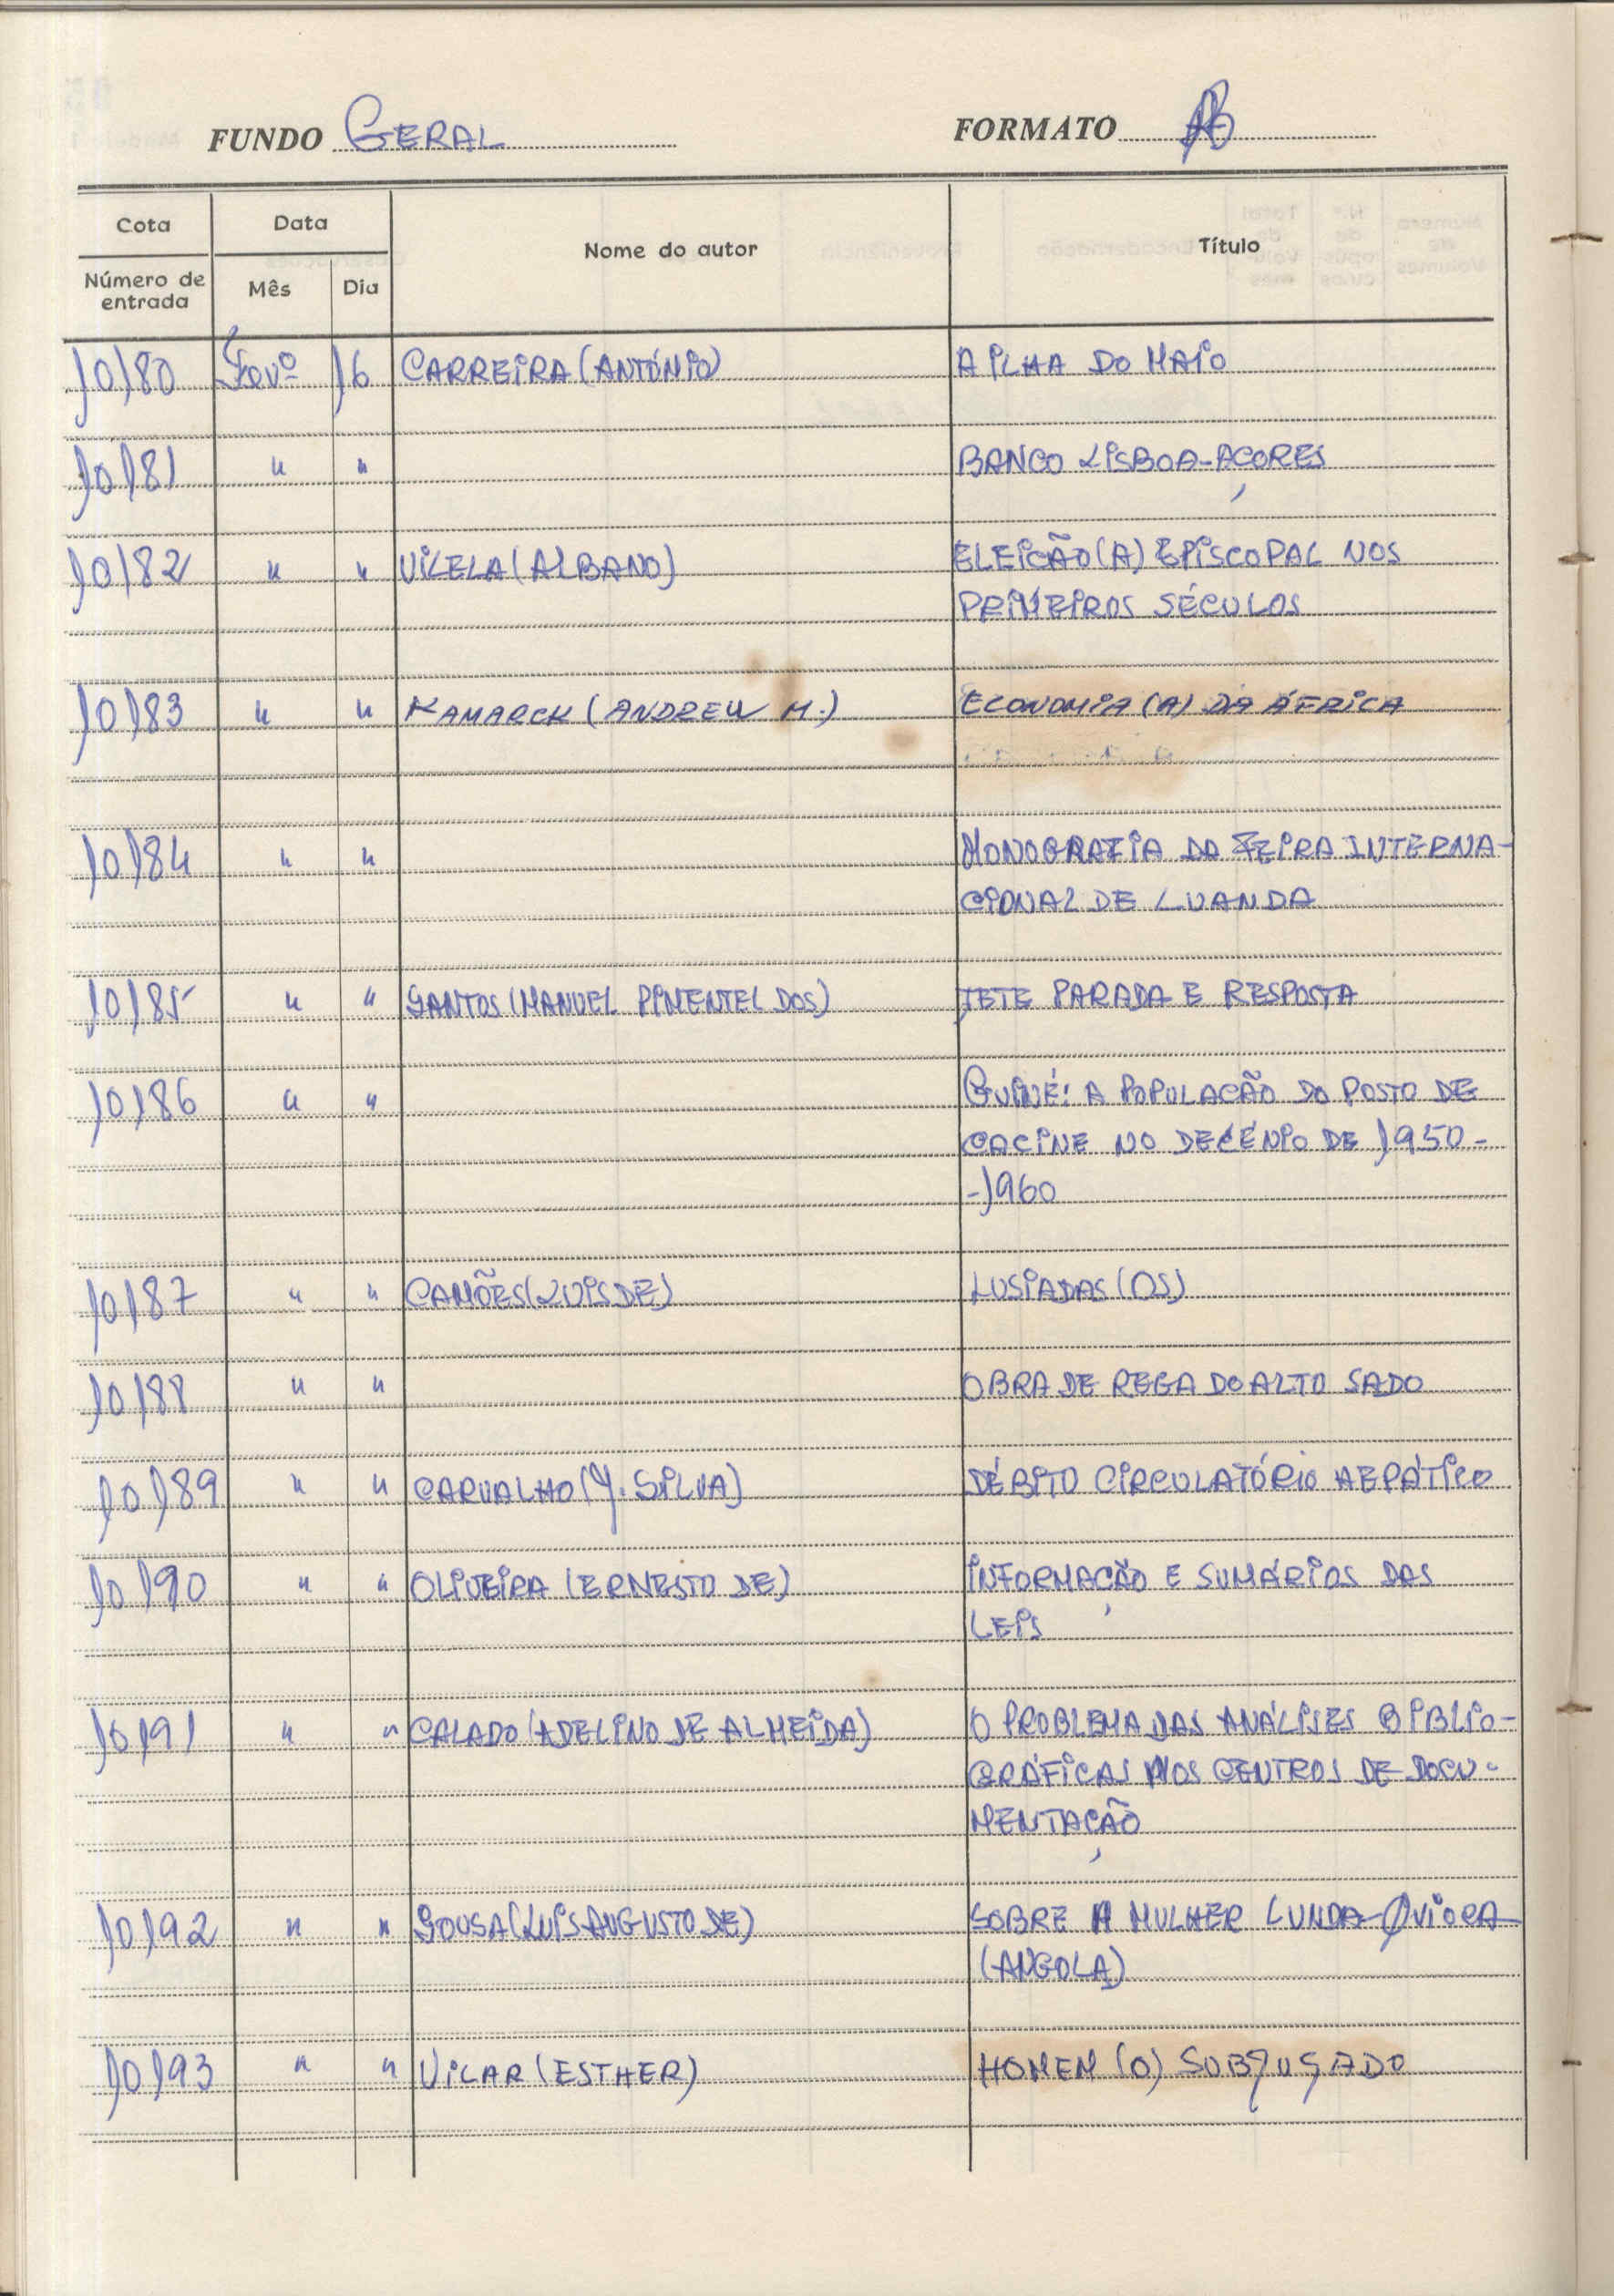 FUNDO GERAL FORMATO
Cota Data Nome do autor Título
Número de entrada Mês Dia
10180 Fevº 16 CARREIRA (ANTÓNIO) A ILHA DO MAIO
10181 " " BANCO LISBOA-AÇORES
10182 " " VILELA (ALBANO) ELEIÇÃO (A) EPISCOPAL NOS
PRIMEIROS SÉCULOS
10183 " " KAMARCK (ANDREW M.) ECONOMIA (A) DA ÁFRICA
10184 " " MONOGRAFIA DA FEIRA INTERNA-
CIONAL DE LUANDA
10185 " " SANTOS (MANUEL PIMENTEL DOS) TETE PARADA E RESPOSTA
10186 " " GUINÉ: A POPULAÇÃO DO POSTO DE
CACINE NO DECÉNIO DE 1950-
-1960
10187 " " CAMÕES (LUIS DE) LUSIADAS (OS)
10188 " " OBRA DE REGA DO ALTO SADO
10189 " " CARVALHO (J. SILVA) DÉBITO CIRCULATÓRIO HEPÁTICO
10190 " " OLIVEIRA (ERNESTO DE) INFORMAÇÃO E SUMÁRIOS DAS
LEIS
10191 " " CALADO (ADELINO DE ALMEIDA) O PROBLEMA DAS ANÁLISES BIBLIO-
GRÁFICAS NOS CENTROS DE DOCU-
MENTAÇÃO
10192 " " SOUSA (LUIS AUGUSTO DE) SOBRE A MULHER LUNDA-QUIOCA
(ANGOLA)
10193 " " VILAR (ESTHER) HOMEM (O) SUBJUGADO